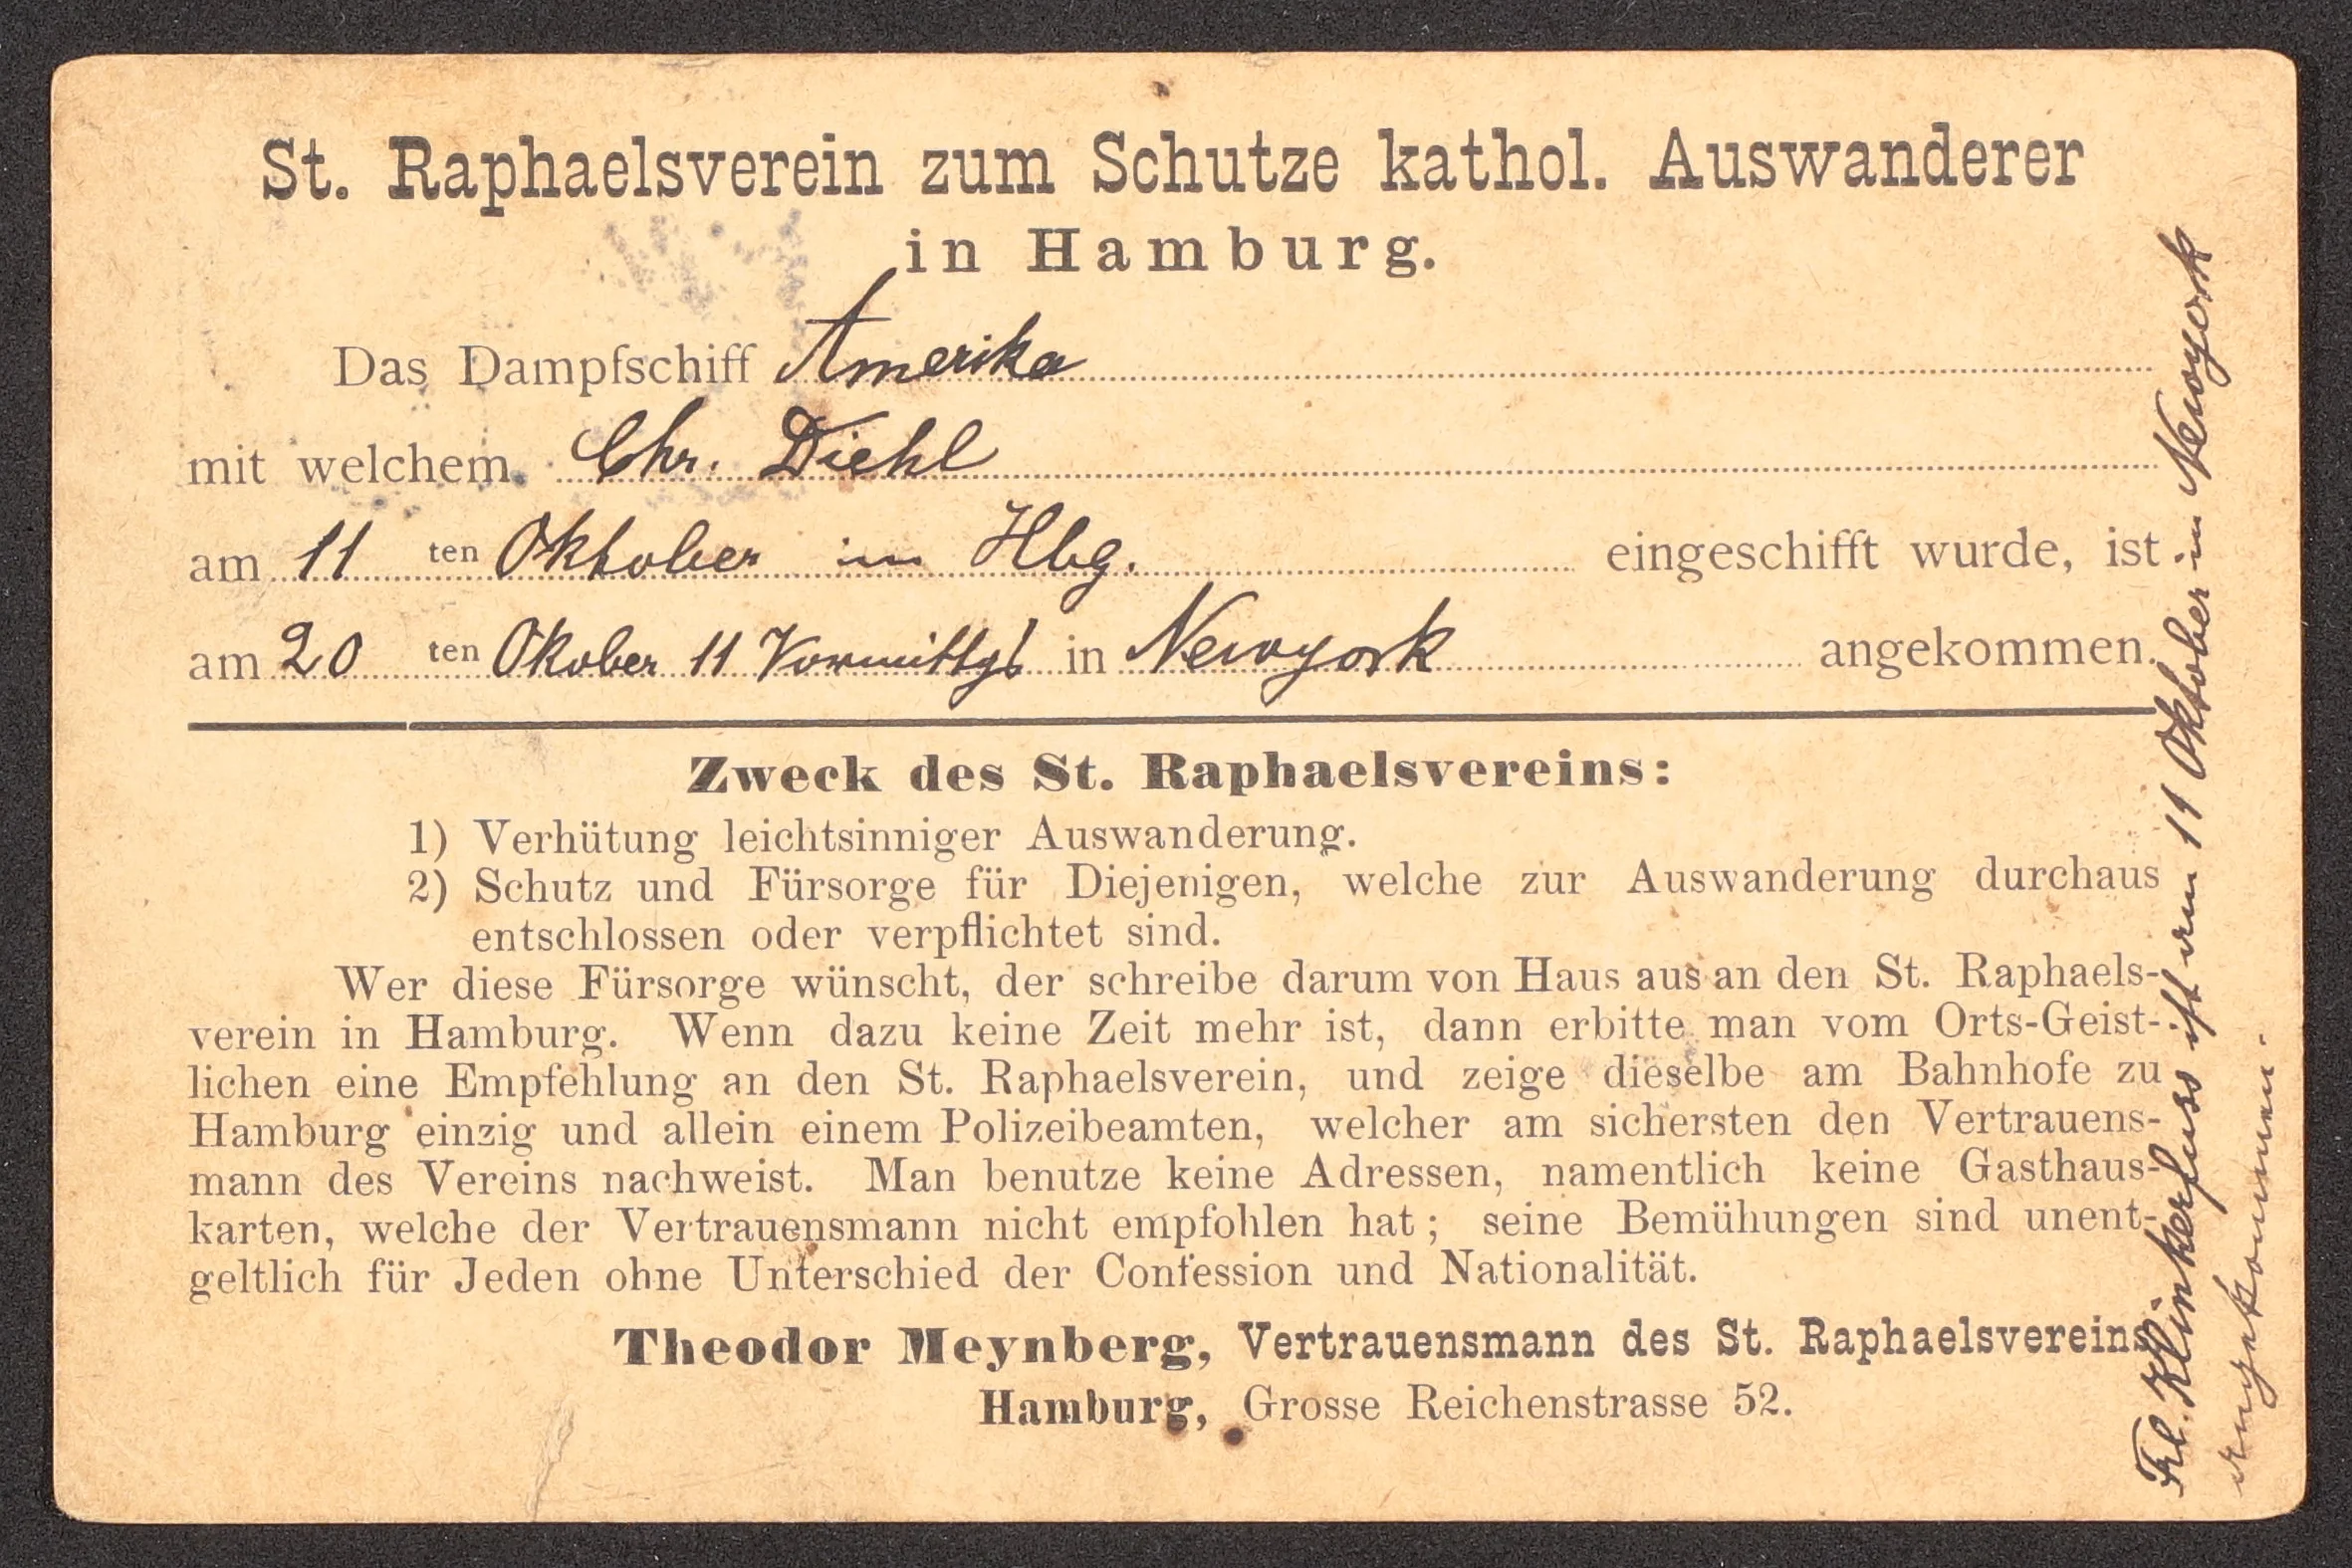 St. Raphaelsverein zum Schutze kathol. Auswanderer
in Hamburg.
Das Dampfschiff Amerika
mit welchem Chr. Diehl
am 11 ten Oktober in Hbg. eingeschifft wurde, ist
am 20 ten Okober 11 Vormittgs in Newyork angekommen.
Zweck des St. Raphaelsvereins:
1) Verhütung leichtsinniger Auswanderung.
2) Schutz und Fürsorge für Diejenigen, welche zur Auswanderung durchaus
entschlossen oder verpflichtet sind.
Wer diese Fürsorge wünscht, der schreibe darum von Haus aus an den St. Raphaels-
verein in Hamburg. Wenn dazu keine Zeit mehr ist, dann erbitte man vom Orts-Geist-
lichen eine Empfehlung an den St. Raphaelsverein, und zeige dieselbe am Bahnhofe zu
Hamburg einzig und allein einem Polizeibeamten, welcher am sichersten den Vertrauens-
mann des Vereins nachweist. Man benutze keine Adressen, namentlich keine Gasthaus-
karten, welche der Vertrauensmann nicht empfohlen hat; seine Bemühungen sind unent-
geltlich für Jeden ohne Unterschied der Confession und Nationalität.
Theodor Meynberg, Vertrauensmann des St. Raphaelsvereins
Hamburg, Grosse Reichenstrasse 52.
Frl. Klinkerfuss ist am 11 Oktober in Newyork
angekommen.